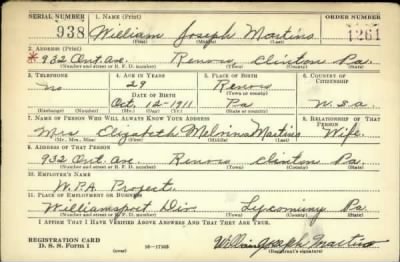 SERIAL NUMBER 1. NAME (Print) ORDER NUMBER
938 William Joseph Martins 1261
(First) (Middle) (Last)
2. ADDRESS (Print)
*932 Ont. Ave. Renovo Clinton Pa.
(Number and street or R. F. D. number) (Town) (County) (State)
3. TELEPHONE 4. AGE IN YEARS 5. PLACE OF BIRTH 6. COUNTRY OF CITIZENSHIP
no 29 Renovo
DATE OF BIRTH (Town or county)
Oct. 12-1911 Pa U.S.A.
(Exchange) (Number) (Mo.) (Day) (Yr.) (State or country)
7. NAME OF PERSON WHO WILL ALWAYS KNOW YOUR ADDRESS 8. RELATIONSHIP OF THAT PERSON
Mrs Elizabeth Melvina Martins Wife.
(Mr., Mrs., Miss) (First) (Middle) (Last)
9. ADDRESS OF THAT PERSON
932 Ont. Ave. Renovo Clinton Pa
(Number and street or R. F. D. number) (Town) (County) (State)
10. EMPLOYER'S NAME
W.P.A. Project.
11. PLACE OF EMPLOYMENT OR BUSINESS
Williamsport Div. Lycoming Pa
(Number and street or R. F. D. number) (Town) (County) (State)
I AFFIRM THAT I HAVE VERIFIED ABOVE ANSWERS AND THAT THEY ARE TRUE.
REGISTRATION CARD William Joseph Martins
D. S. S. Form 1 (over) (Registrant's signature)